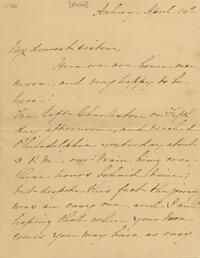 1170
Asbury - April 14th
My dearest sister,
Here we are home once
more, and very happy to be
here!
We left Charleston on Fifth
day afternoon, and reached
Philadelphia yesterday about
3 P.M., our train being over
three hours behind time;
but despite this fact the journey
was an easy one, and I am
hoping that when your turn
comes you may have as easy